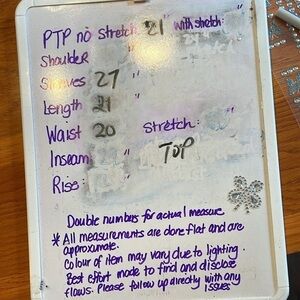 PTP no stretch 21" with stretch: "
Shoulder "
Sleeves 27 "
Length 21 "
Waist 20 Stretch: "
Inseam: " TOP
Rise: "
Double numbers for actual measure
* All measurements are done flat and are
approximate.
Colour of item may vary due to lighting.
Best effort made to find and disclose
flaws. Please follow up directly with any
issues